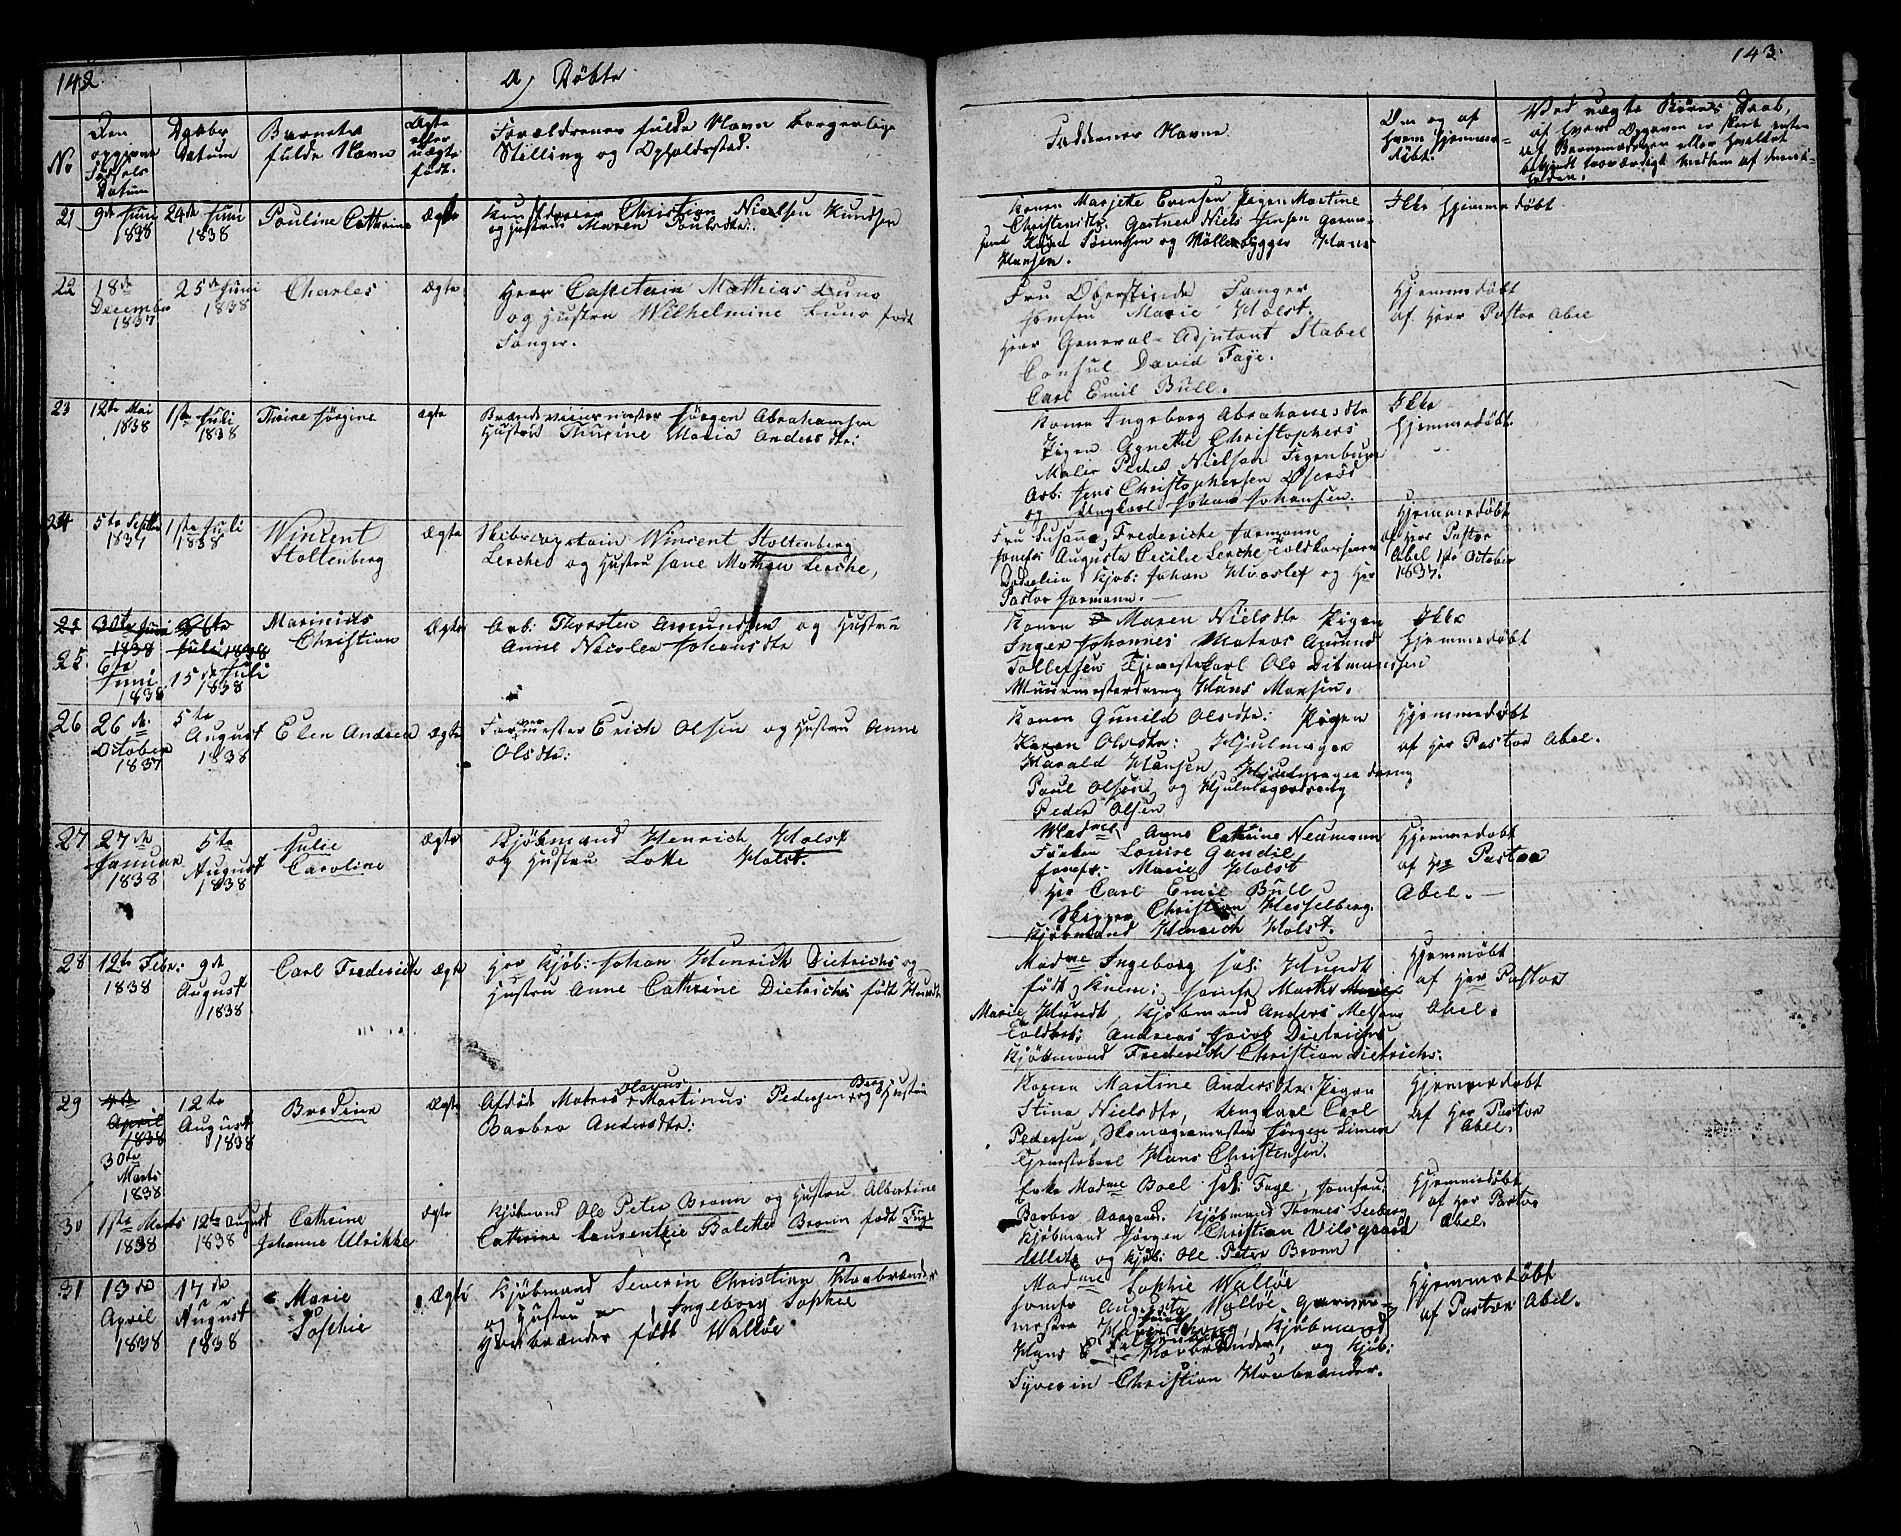 142
a, Døbte
No
Den opgivne Fødsels Datum
Daabs Datum
Barnets fulde Navn
Ægte eller uægte født.
Forældrenes fulde Navn borgerlige
Stilling og Opholdssted.
21 9de Juni 1838 24de Juni 1838 Pauline Cathrine Ægte
Christian Nielsen Knudsen
og Hustrue Maren Poulsdtr:
22 18de December 1837 25de Juni 1838 Charles Ægte
Herr Capitain Mathias Lund
og Hustru Wilhelmine Lund født
Sanger.
23 12te Mai 1838 1ste Juli 1838 Thrine Jørgine ægte
Jørgen Abrahamsen
Hustru Thurine Maria Andersdtr:
24 5te Septbr 1837 1ste Juli 1838 Wincent Stoltenberg Ægte
Skibscaptain Wincent Stoltenberg
Lerche og Hustru Jane Mathea Lerche,
25 30te Juni 1838
25. 6te Juni 1838 15de Juli 1838 Marinius Christian Ægte
Arb: Thorsten Amundsen og Hustru
Anne Nicolea Johansdtr
26 26de October 1837 5te August 1838 Elen Andrea Ægte
Farvermester Erich Olsen og Hustru Anne
Olsdtr:
27 27de Januar 1838 5te August 1838 Julie Caroline Ægte
Kjøbmand Henrich Holst
og Hustru Lotte Holst.
28 12te Febr: 1838 9de August 1838 Carl Frederich Ægte
Herr Kjøb: Johan Henrich Dietrichs og
Hustru Anne Cathrine Dietrichs født Hundt
29 4de April 1838 30te Marts 1838 12te August 1838 Brodine Ægte
Afdøde Matros Olavus Martinus Pedersen Berg og Hustru
Barbro Andersdtr:
30 1ste Marts 1838 12te August 1838 Cathrine Johanne Ulrikke Ægte
Kjøbmand Ole Peter Bronn og Hustru Albertine
Cathrine Laurentzie Bolette Bronn født Faye
31 13de April 1838 17de August 1838 Marie Sophie Ægte
Kjøbmand Severin Christian Horbrænder
og Hustru Ingeborg Sophie
født Walløe
143.
Faddernes Navne.
Om og af hvem hjemmedøbt.
Ved uægte Børns Daab,
Konen Marjette Evensen Pigen Martine
Christensdtr. Gartner Niels Jensen
Sørensen og Møllebygger Hans
Hansen.
Ikke hjemmedøbt
Fru Oberstinde Sanger
Jomfru Marie Holst.
Herr General-Adjutant Stabel
Consul David Faye.
Carl Emil Bull.
Hjemmedøbt
af Herr Pastor Abel
Konen Ingeborg Abrahamsdtr
Pigen Agnethe Christophers
Maler Peder Nielsen
Arb: Jens Christophersen
og Ungkarl Johan Johansen.
Ikke
hjemmedøbt.
Fru Susanne Frederiche Hormann
Jomfru Augusta Cecilie Lerche
Kjøb: Johan og Hr
Pastor Hormann.
Hjemmedøbt
af Herr Pastor
Abel 1ste October
1837.
Konen Maren Nielsdtr Pigen
Inger Johannes Matros Amund
Tollefsen Tjenestekarl Ole Ditmansen
Muurmesterdreng Hans Monsen.
Ikke
hjemmedøbt
Konen Gunild Olsdtr: Pigen
Karen Olsdtr: Hjulmager
Harald Hansen
Paul Olsen og
Peder Olsen
Hjemmedøbt
af Her Pastor Abel.
Madme Anne Cathrine Neumann
Frøken Louise
Jomfr: Marie Holst
Hr Carl Emil Bull
Skipper Christian Hesselberg.
Kjøbmand Henrich Holst.
Hjemmedøbt
af Her Pastor
Abel.
Madme Ingeborg sal: Hundt
født Jomfr Marthe
Marie Hundt, Kjøbmand Anders
Andreas Jacob Dietrichs
Kjøbmand Frederich Christian Dietrichs.
Hjemmdøbt
af Her Pastor
Abel.
Konen Martine Andersdtr. Pigen
Stina Nielsdtr, Ungkarl Carl
Pedersen, Skomagermester Jørgen Simon
Tjenestekarl Hans Christensen.
Hjemmedøbt
af Her Pastor
Abel.
Enke Madme Boel sal: Faye, Jomfru
Barbro Aargaard. Kjøbmand Thomes Seeberg
Kjøbmand Jørgen Christian
og Kjøb: Ole Peter Bronn
Hjemmedøbt
af Her Pastor
Abel.
Madme Sophie Walløe
Jomfr Augusta Walløe,
Kjøbmand
Hans Horbrænder, og Kjøb:
Syverin Christian Horbrænder.
Hjemmedøbt
af Pastor Abel.